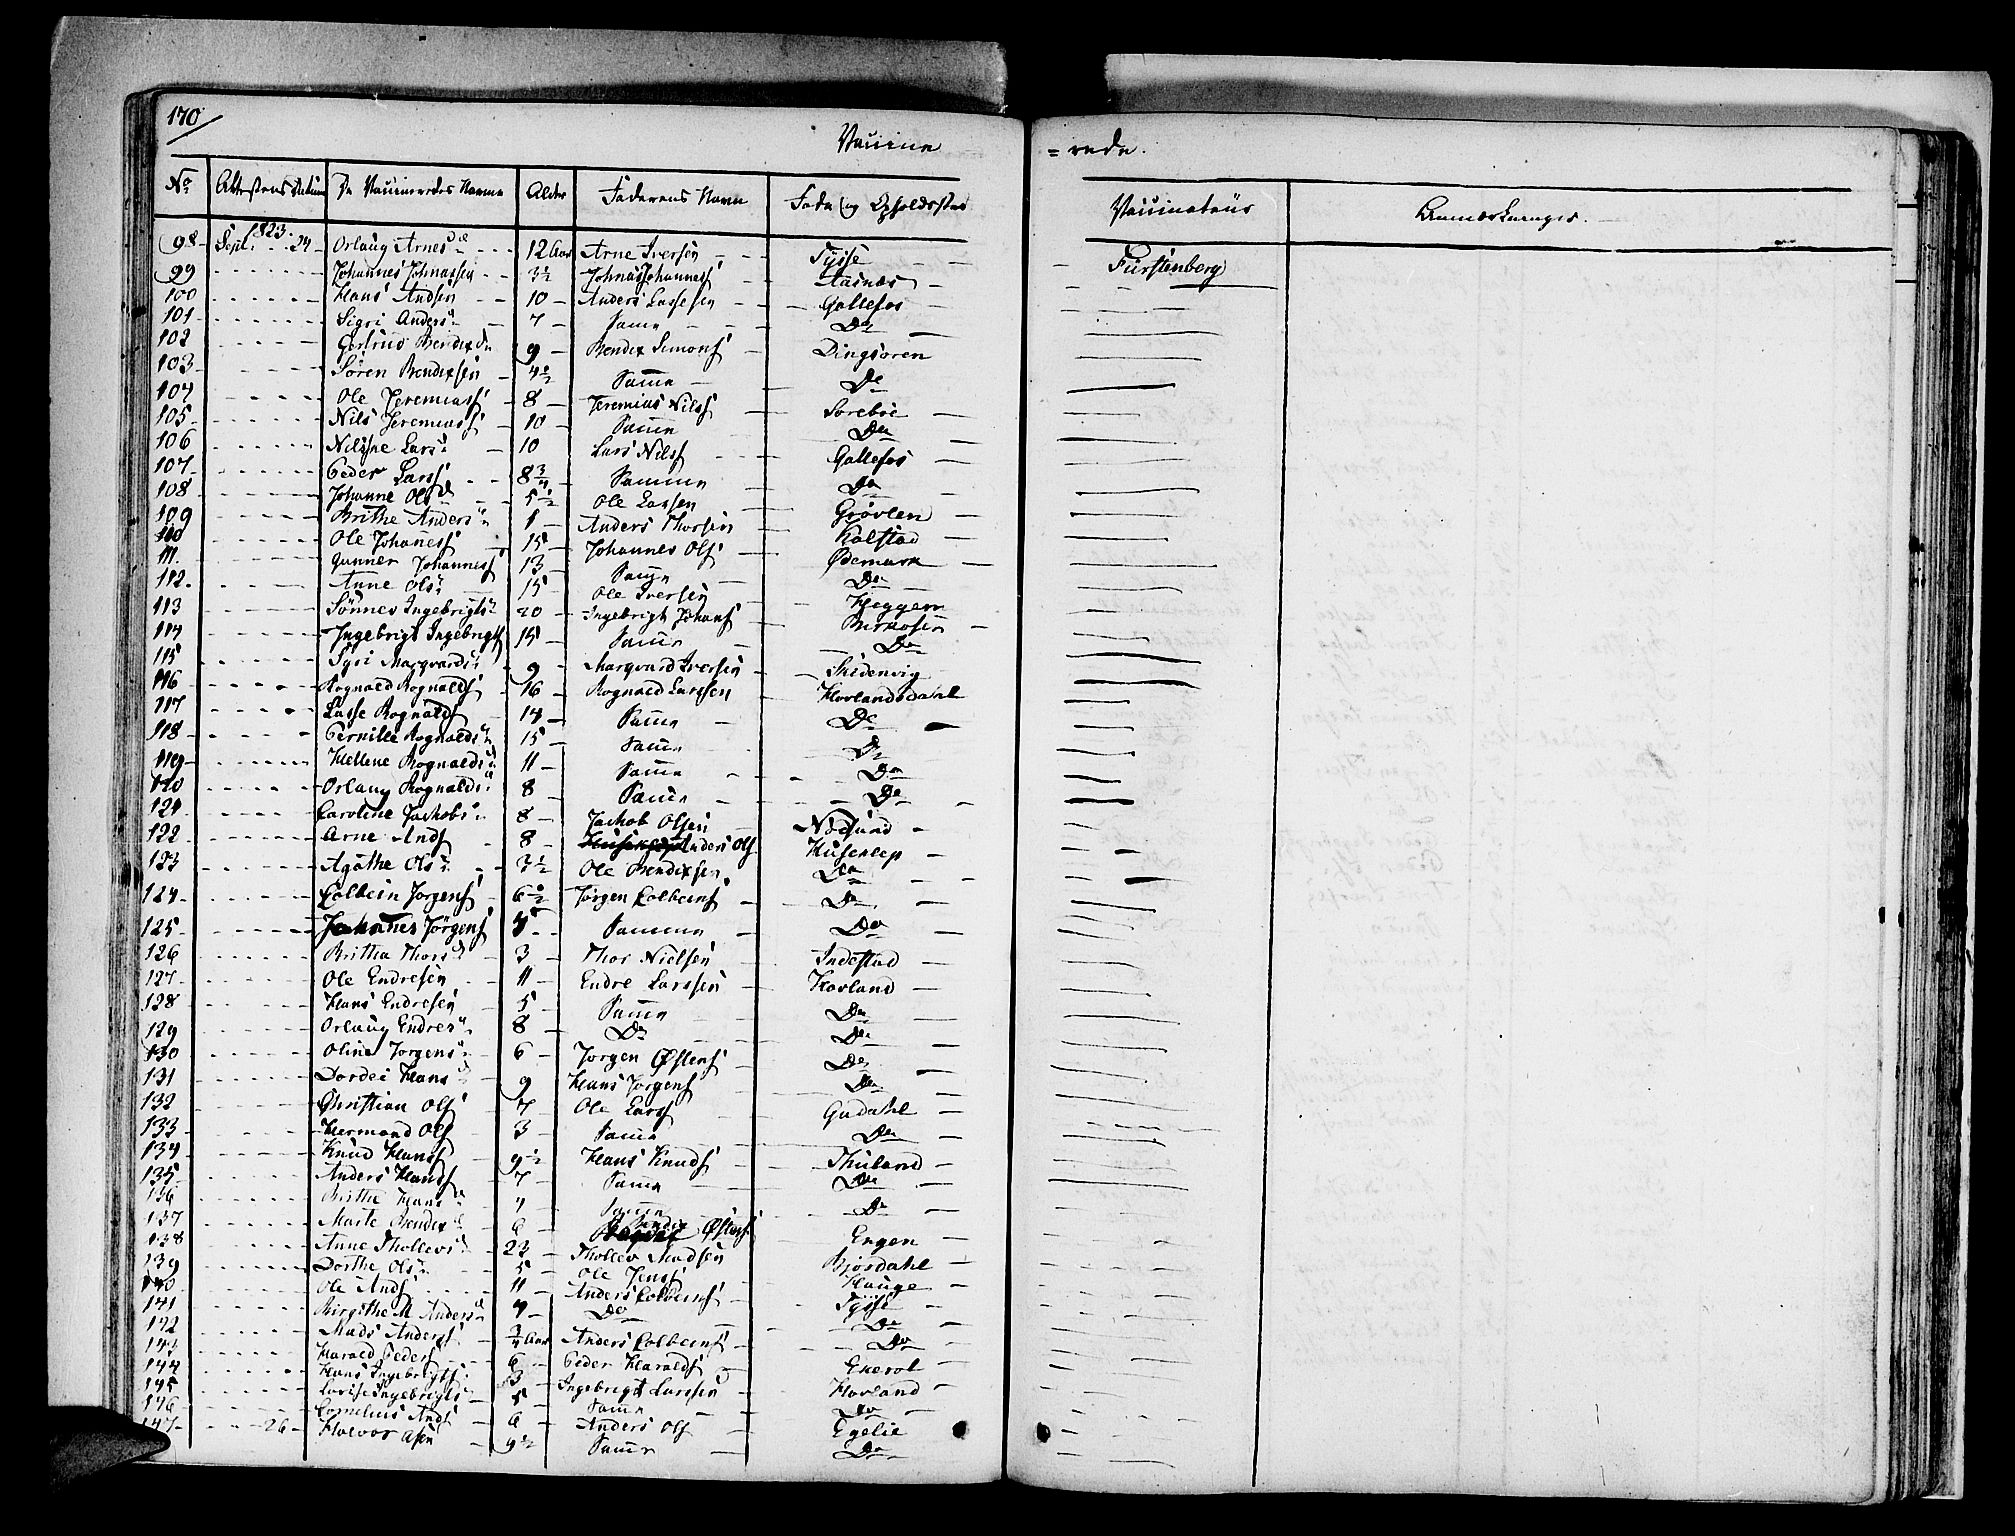 170
Vaccine
= rede.
No Attestens Datum De Vaccineredes Navne Alder Faderens Navn Føde og Opholdssted Vaccinateur Anmærkninger.
1823.
98 Septr 24 Orlaug Arnesd 12 Aar Arne Iversen Tysse Fürstenberg
99 Johannes Johnassen 3½ Johnas Johannesf Aasnæs
100 Hans Andsen 10 Anders Lassesen Gallefos
101 Sigri Andersd 7 Samme Do
102 Gertrud Bendixdr 9 Bendix Simonsf Dingsøren
103 Søren Bendixsen 4½ Samme Do
104 Ole Jeremiasf 8 Jeremias Nilsf Sørebøe
105 Nils Jeremiasf 10 Samme Do
106 Nilsine Larsd 10 Lars Nilsf Gallefos
107 Peder Larsf 8¾ Samme Do
108 Johanne Olsd 5½ Ole Lassen Grøvlen
109 Brithe Andersd 1 Anders Thorsen Kalstad
110 Ole Johanesf 15 Johannes Olsf Ødemark
111 Gunner Johannesf 13 Samme Do
112 Anne Olsd 15 Ole Iversen Heggem
113 Sønnev Ingebrigtsd 20 Ingebrigt Johansf Birkosen
114 Ingebrigt Ingebrigtsf 15 Samme Do
115 Syri Marqvardsd 9 Marqvard Iversen Skidenvig
116 Rognald Rognaldsf 16 Rognald Larssen Hovlandsdahl
117 Lasse Rognaldsf 14 Samme Do
118 Pernille Rognaldsd 15 Samme Do
119 Hellene Rognaldsd 11 Samme Do
120 Orlaug Rognaldsd 8 Samme Do
121 Caroline Jackobsd 8 Jackob Olsen Nodsund
122 Arne Andsf 8 Anders Olsf Huseklep
123 Agathe Olsd 3½ Ole Bendixsen Do
124 Colbein Jørgensf 6½ Jørgen Colbeinsf Do
125 Johannes Jørgensf 4 Samme Do
126 Britha Thorsd 3 Thor Nielsen Indestad
127 Ole Endresen 11 Endre Larssen Hovland
128 Hans Endresen 5 Samme Do
129 Orlaug Endresd 8 Do Do
130 Oline Jørgensd 6 Jørgen Østensf Do
131 Dordei Hansd 9 Hans Jørgensf Do
132 Christian Olsf 7 Ole Larsf Gudahl
133 Hermand Olsf 3 Samme Do
134 Knud Hansf 9½ Hans Knudsf Thuland
135 Anders Hansf 7 Samme Do
136 Brithe Hansd 4 Samme Do
137 Marte Bendixd 6 Bendix Østensf Engen
138 Anne Thollevsd 23 Thollev Madsen Bjørdahl
139 Dorthe Olsd 5 Ole Jensf Hauge
140 Ole Andsf 11 Anders Colbeinsf Tysse
141 Birgithe M Andersd 4 Do Do
142 Mads Andersf ¾ Aar Anders Colbeinsf Do
143 Harald Pedersf 6 Peder Haraldsf Ekerol
144 Hans Ingebrigtsf 3 Ingebrigt Larssen Hovland
145 Lovise Ingebrigtsd 5 Samme Do
146 Cornelius Andsf 6 Anders Olsf Egelie
147 26 Halvor Asen 9½ Samme Do